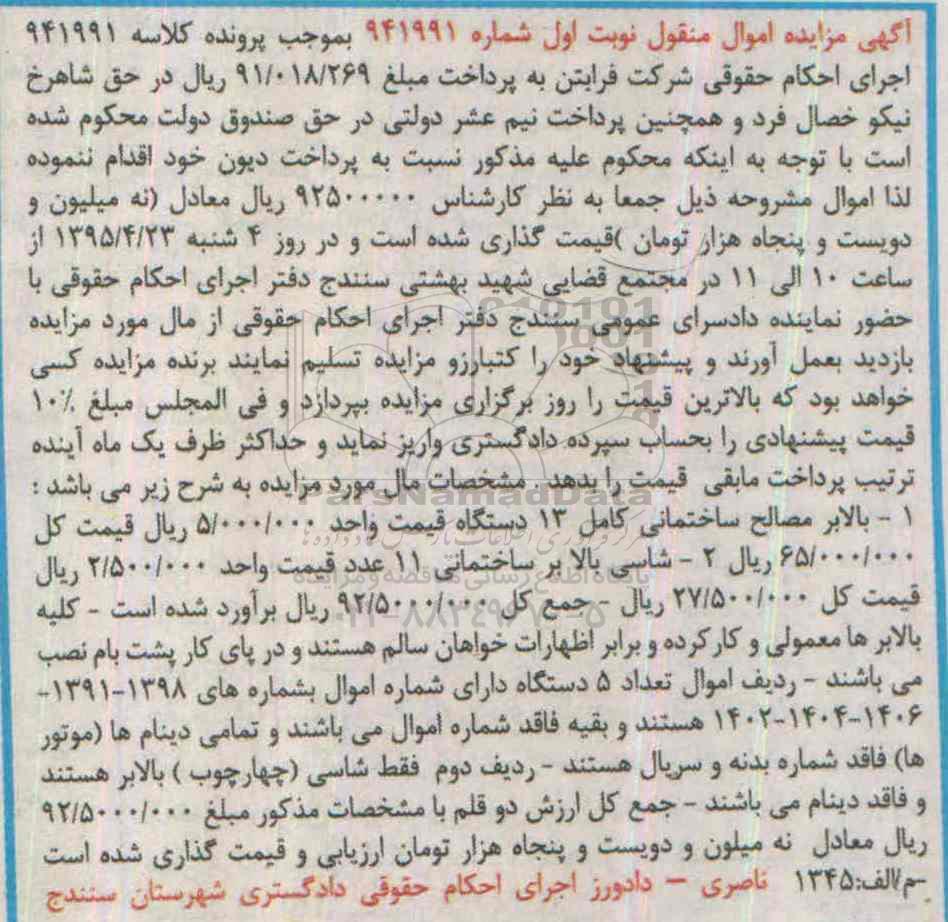 آگهی مزایده اموال منقول نوبت اول شماره ۹۴۱۹۹۱ بموجب پرونده کلاسه ۹۴۱۹۹۱
اجرای احکام حقوقی شرکت فرابتن به پرداخت مبلغ ۹۱/۰۱۸/۲۶۹ ریال در حق شاهرخ
نیکو خصال فرد و همچنین پرداخت نیم عشر دولتی در حق صندوق دولت محکوم شده
است با توجه به اینکه محکوم علیه مذکور نسبت به پرداخت دیون خود اقدام ننموده
لذا اموال مشروحه ذیل جمعا به نظر کارشناس ۹۲۵۰۰۰۰۰ ریال معادل (نه میلیون و
دویست و پنجاه هزار تومان )قیمت گذاری شده است و در روز ۴ شنبه ۱۳۹۵/۴/۲۳ از
ساعت ۱۰ الی ۱۱ در مجتمع قضایی شهید بهشتی سنندج دفتر اجرای احکام حقوقی با
حضور نماینده دادسرای عمومی سنندج دفتر اجرای احکام حقوقی از مال مورد مزایده
بازدید بعمل آورند و پیشنهاد خود را کتبارزو مزایده تسلیم نمایند برنده مزایده کسی
خواهد بود که بالاترین قیمت را روز برگزاری مزایده بپردازد و فی المجلس مبلغ ۱۰٪
قیمت پیشنهادی را بحساب سپرده دادگستری واریز نماید و حداکثر ظرف یک ماه آینده
ترتیب پرداخت مابقی قیمت را بدهد . مشخصات مال مورد مزایده به شرح زیر می باشد :
ParsNamadData
۱ - بالابر مصالح ساختمانی کامل ۱۳ دستگاه قیمت واحد ۵/۰۰۰/۰۰۰ ریال قیمت کل
۶۵/۰۰۰/۰۰۰ ریال ۲ - شاسی بالا بر ساختمانی ۱۱ عدد قیمت واحد ۲/۵۰۰/۰۰۰ ریال
پایگاه اطلاع رسانی مناقصه و مزایده
قیمت کل ۲۷/۵۰۰/۰۰۰ ریال - جمع کل ۹۲/۵۰۰۰/۰۰۰ ریال برآورد شده است - کلیه
بالابر ها معمولی و کارکرده و برابر اظهارات خواهان سالم هستند و در پای کار پشت بام نصب
می باشند - ردیف اموال تعداد ۵ دستگاه دارای شماره اموال بشماره های ۱۳۹۸-۱۳۹۱-
۱۴۰۶-۱۴۰۴-۱۴۰۲ هستند و بقیه فاقد شماره اموال می باشند و تمامی دینام ها (موتور
ها) فاقد شماره بدنه و سریال هستند - ردیف دوم فقط شاسی (چهارچوب ) بالابر هستند
و فاقد دینام می باشند - جمع کل ارزش دو قلم با مشخصات مذکور مبلغ ۹۲/۵۰۰۰/۰۰۰
ریال معادل نه میلون و دویست و پنجاه هزار تومان ارزیابی و قیمت گذاری شده است
-م/الف:۱۳۴۵ ناصری – دادورز اجرای احکام حقوقی دادگستری شهرستان سنندج